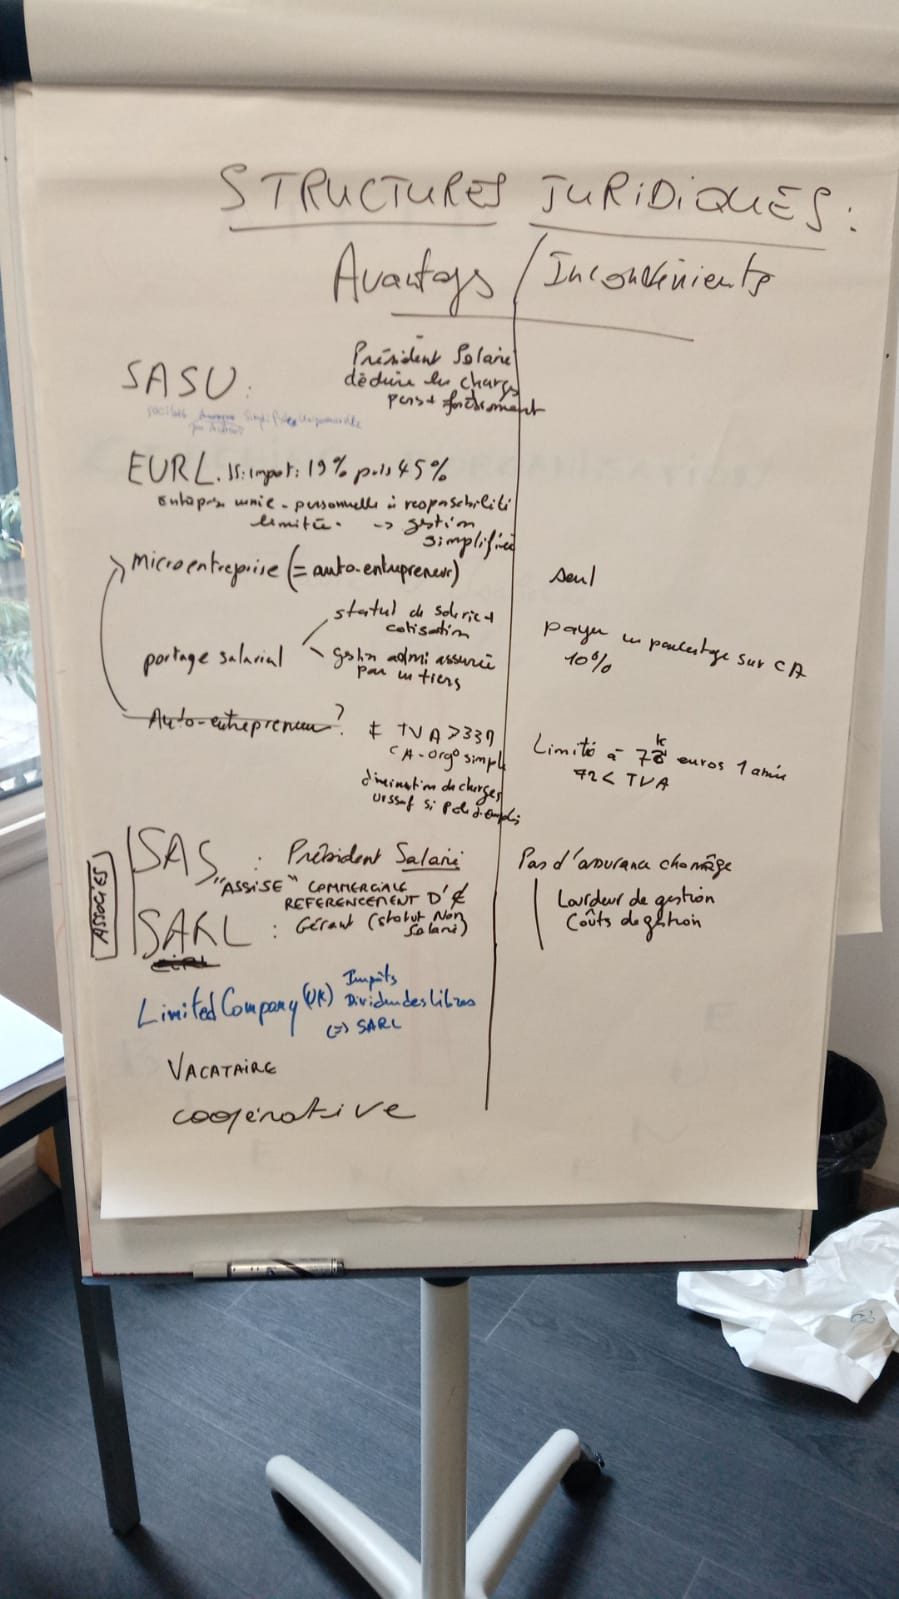 STRUCTURES JURIDIQUES:
Avantages / Inconvénients
SASU: Président Salarié
déduire les charges
fonctionnement
EURL. IS: import: 19% puis 45%
Entreprise unie-personnelle à responsabilité
limitée. -> gestion
simplifiée
microentreprise (= auto-entrepreneur) seul
statut de salarié +
cotisation
portage salarial payer un pourcentage sur CA
10%
gestion admi assurée
par un tiers
Auto-entrepreneur ?
TVA > 33
CA - orga° simple
diminution de charges
urssaf si pole d'emploi
Limité à 7 k euros 1 année
72 < TVA
ASSOCIES
SAS : Président Salarié Pas d'assurance chomâge
"ASSISE" COMMERCIALE
REFERENCEMENT D'
SARL : Gérant (Statut Non
Salarié)
Lourdeur de gestion
Coûts de gestion
Limited Company (UK) Impôts
Dividendes libres
(=) SARL
VACATAIRE
coopérative